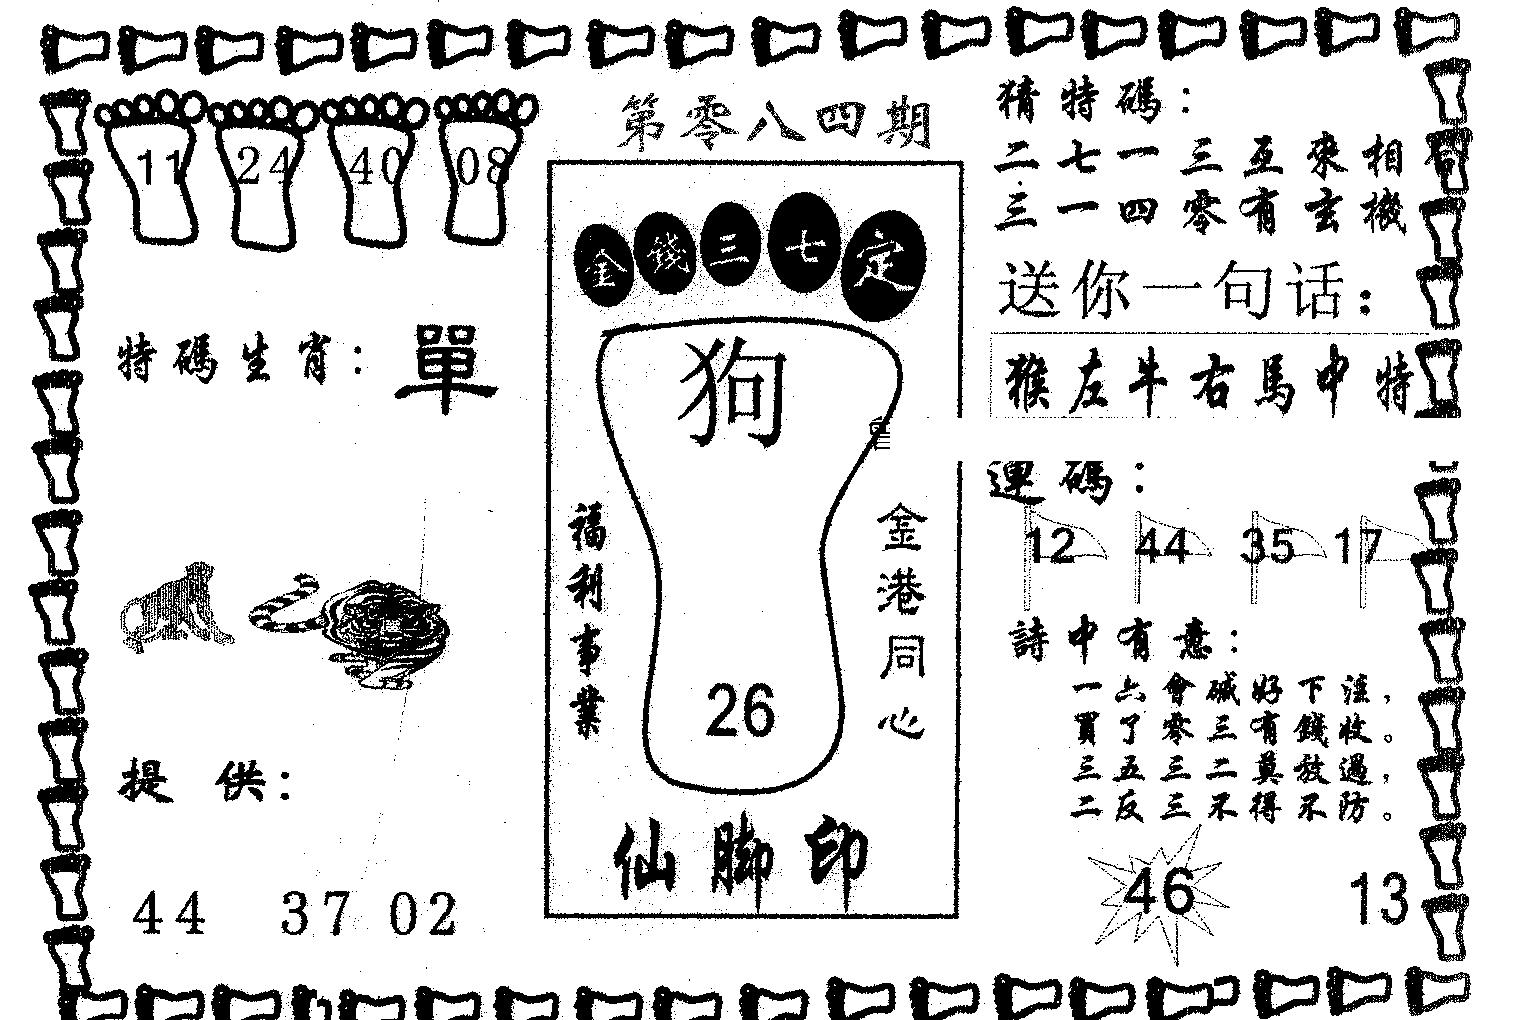 第零八四期
11 24 40 08
特碼生肖：單
提供：
44 37 02
金錢三七定
狗
福利事業
金港同心
26
仙脚印
猜特碼：
二七一三互來相
三一四零有玄機
送你一句话：
猴左牛右馬中特
連碼：
12 44 35 17
詩中有意：
一六會碱好下注，
買了零三有錢收。
三五三二莫放過，
二反三不得不防。
46 13